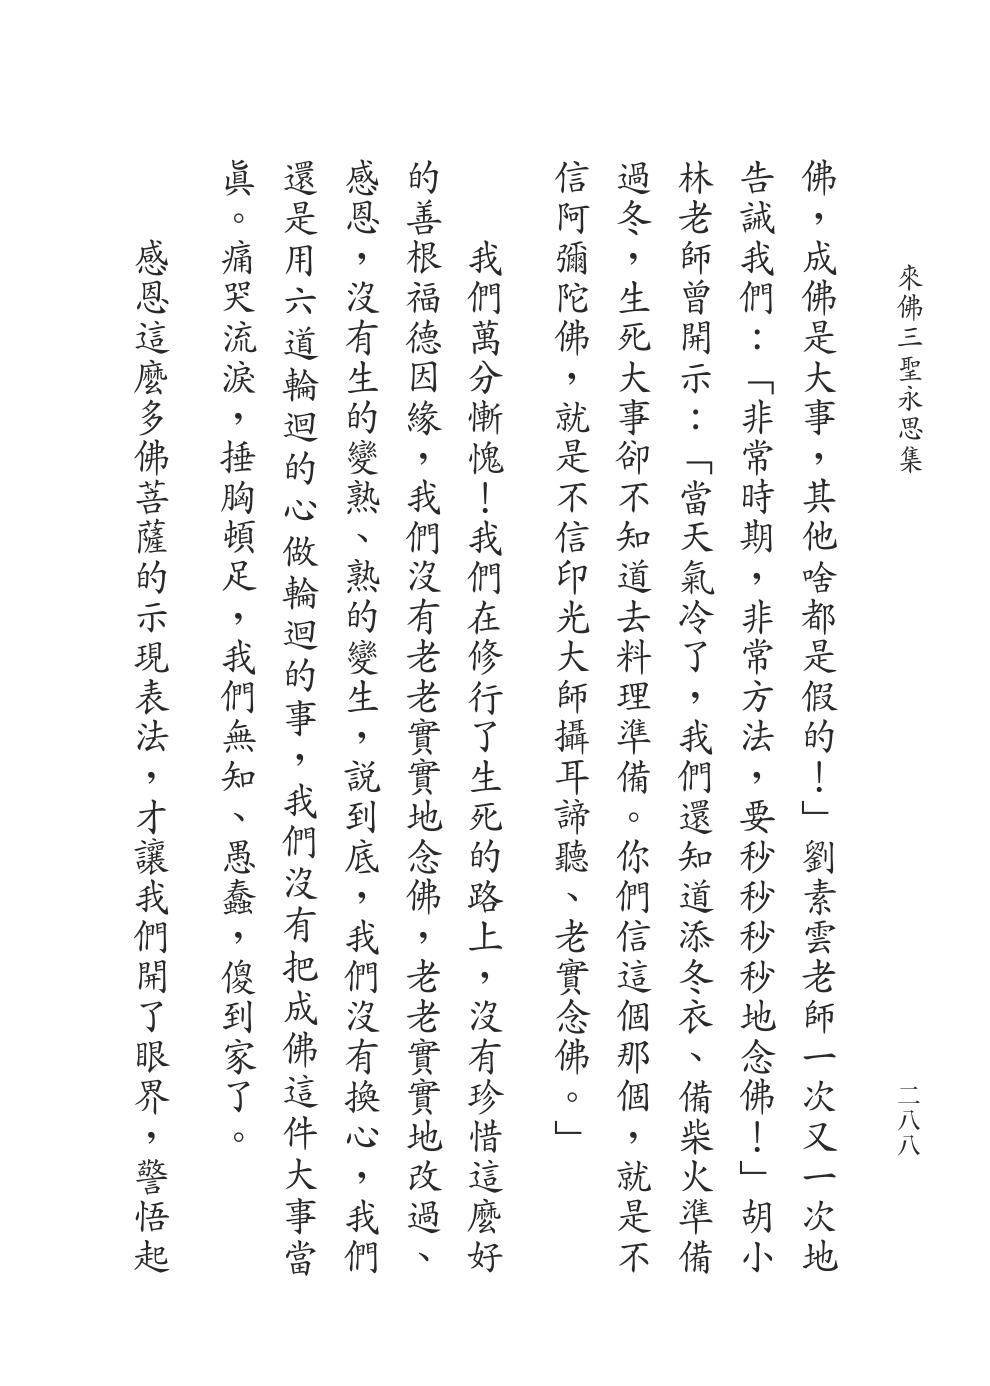 來佛三聖永思集
二八八
佛，成佛是大事，其他啥都是假的！」劉素雲老師一次又一次地
告誡我們：「非常時期，非常方法，要秒秒秒秒地念佛！」胡小
林老師曾開示：「當天氣冷了，我們還知道添冬衣、備柴火準備
過冬，生死大事卻不知道去料理準備。你們信這個那個，就是不
信阿彌陀佛，就是不信印光大師攝耳諦聽、老實念佛。」
我們萬分慚愧！我們在修行了生死的路上，沒有珍惜這麼好
的善根福德因緣，我們沒有老老實實地念佛，老老實實地改過、
感恩，沒有生的變熟、熟的變生，說到底，我們沒有換心，我們
還是用六道輪迴的心做輪迴的事，我們沒有把成佛這件大事當
眞。痛哭流淚，捶胸頓足，我們無知、愚蠢，傻到家了。
感恩這麼多佛菩薩的示現表法，才讓我們開了眼界，警悟起